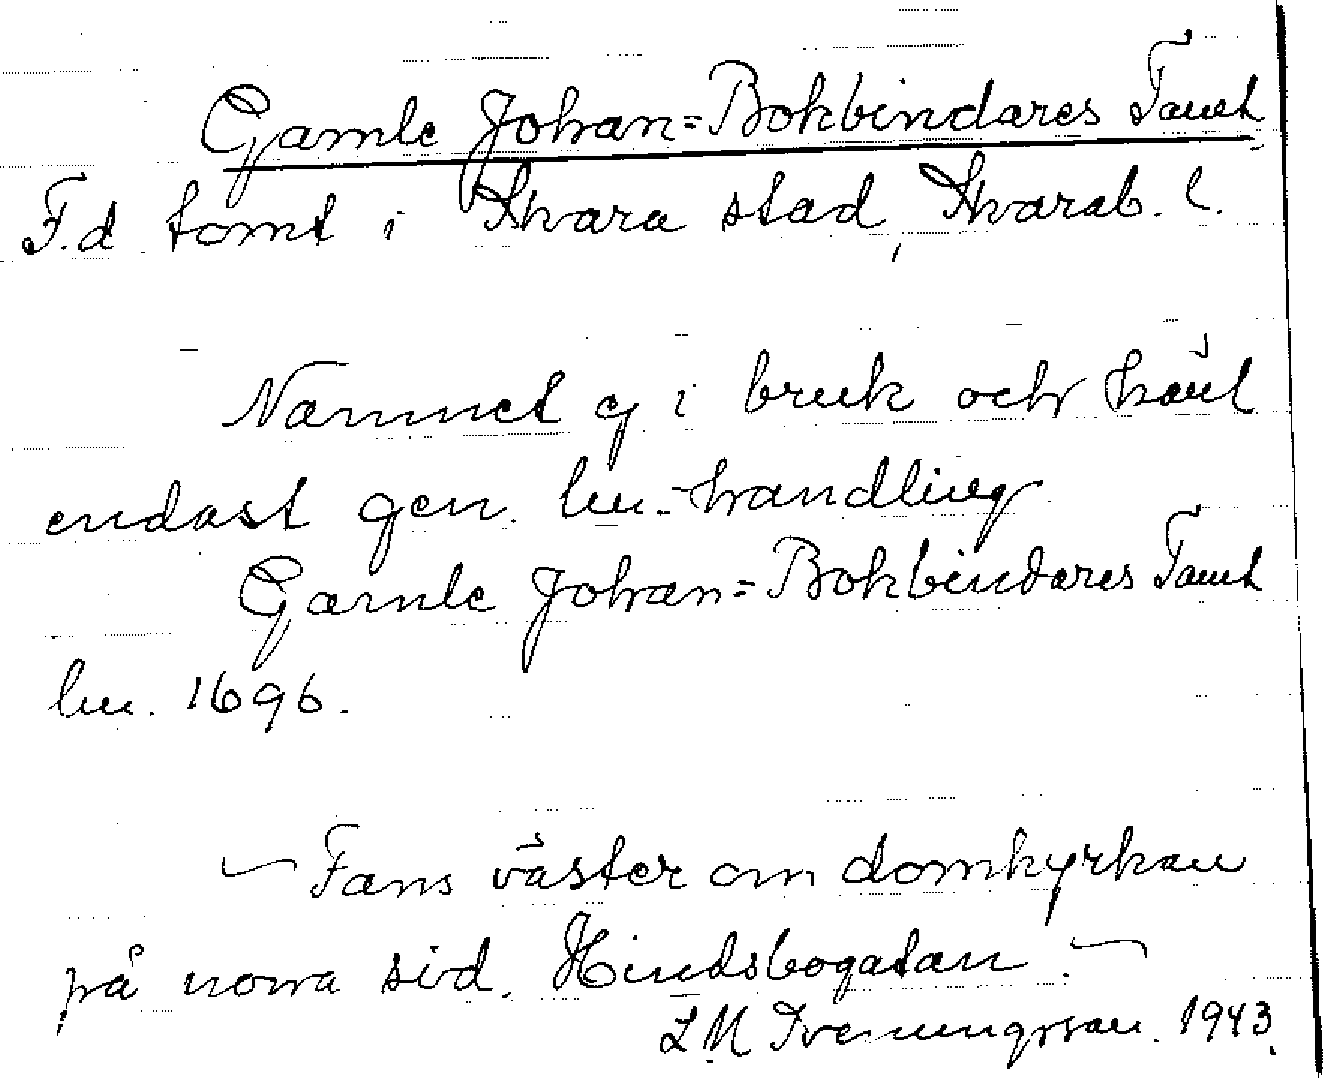 Gamle Johan=Bokbindares Tomt
F.d tomt i Skara stad, Skarab. l.
Namnet ej i bruk och känt
endast gen. lm.-handling
Gamle Johan=Bokbindares Tomt
lm. 1696.
Fans väster om domkyrkan
på norra sid. Hindsbogatan.
1943.